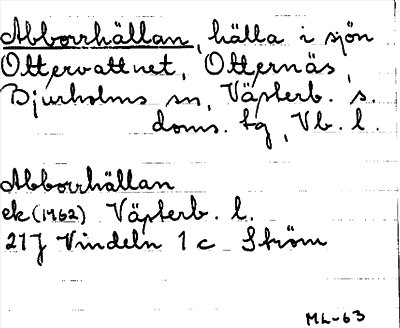 Abborrhällan, hälla i sjön
Ottervattnet, Otternäs,
Bjurholms sn, Västerb. s.
doms. tg, Vb. l.
Abborrhällan
ek (1962) Västerb. l.
21J Vindeln 1c Ström
ML-63